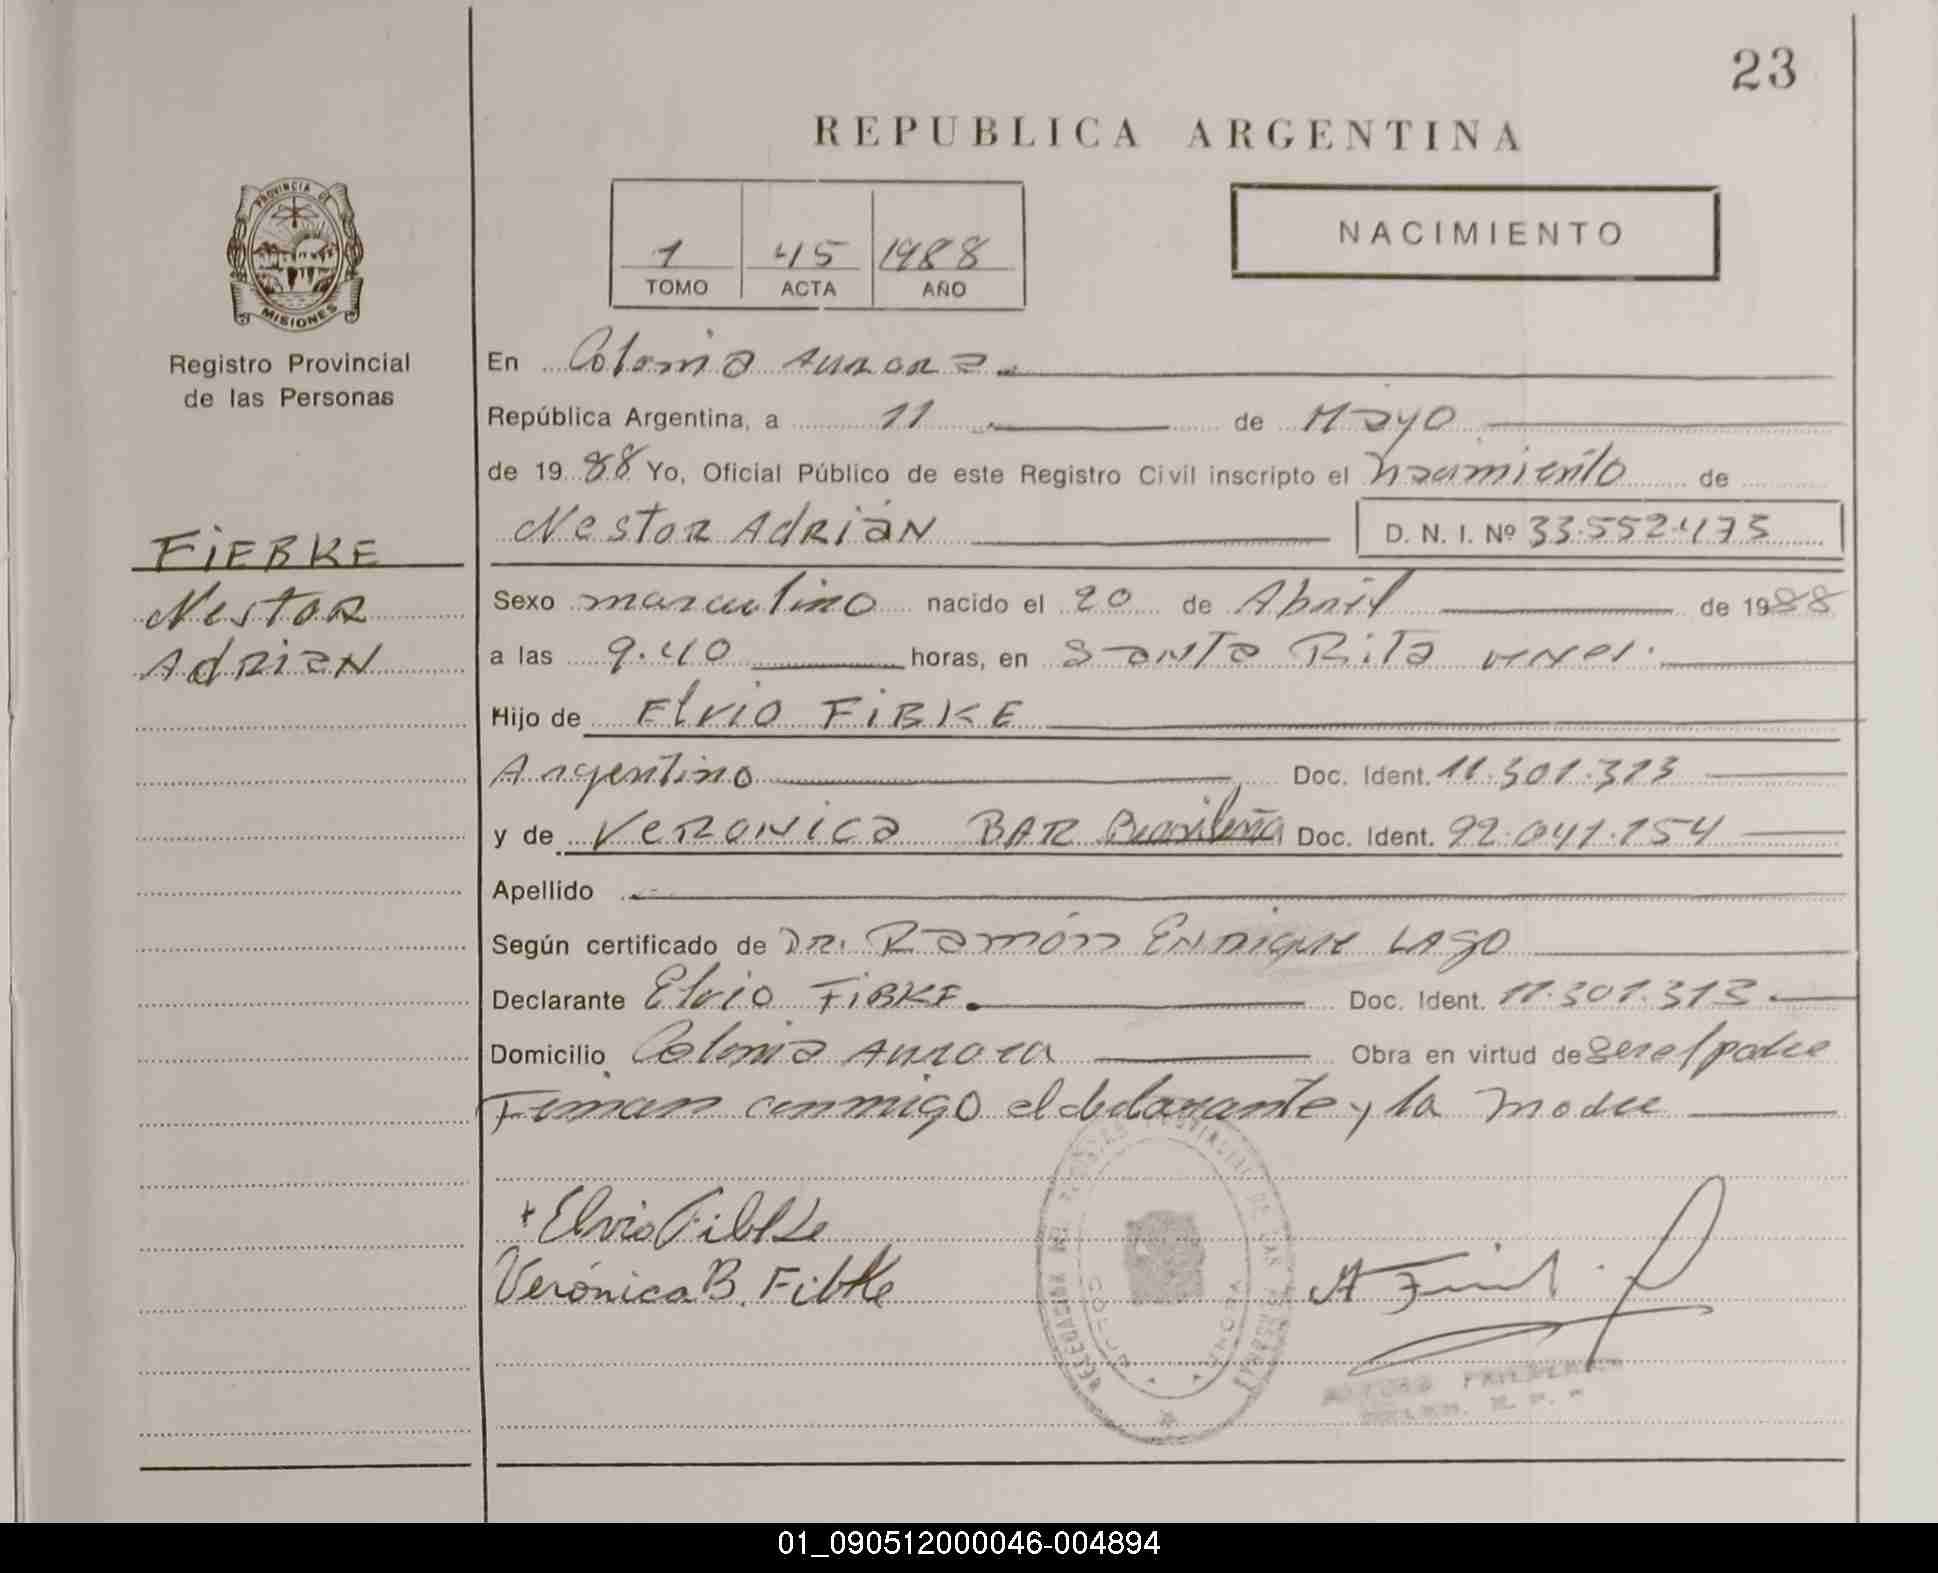 23
REPUBLICA ARGENTINA
PROVINCIA DE
MISIONES
Registro Provincial
de las Personas
1 45 1988
TOMO ACTA AÑO
NACIMIENTO
En Colonia Aurora
República Argentina, a 11 de Mayo
de 1988 Yo, Oficial Público de este Registro Civil inscripto el nacimiento de
Nestor Adrián D. N. I. Nº 33.552.473
FiEBKE
Nestor
Adrian
Sexo masculino nacido el 20 de Abril de 1988
a las 9.40 horas, en Santa Rita
Hijo de Elvio FiBKE
Argentino Doc. Ident. 11.301.313
y de Veronica BAR Brasileña Doc. Ident. 92.041.154
Apellido
Según certificado de DR. Ramón Enrique LAGO
Declarante Elvio FiBKE Doc. Ident. 11.301.313
Domicilio Colonia Aurora Obra en virtud de ser el padre
Firman conmigo el declarante y la madre
+ Elvio Fibke
Verónica B. Fibke
01_090512000046-004894